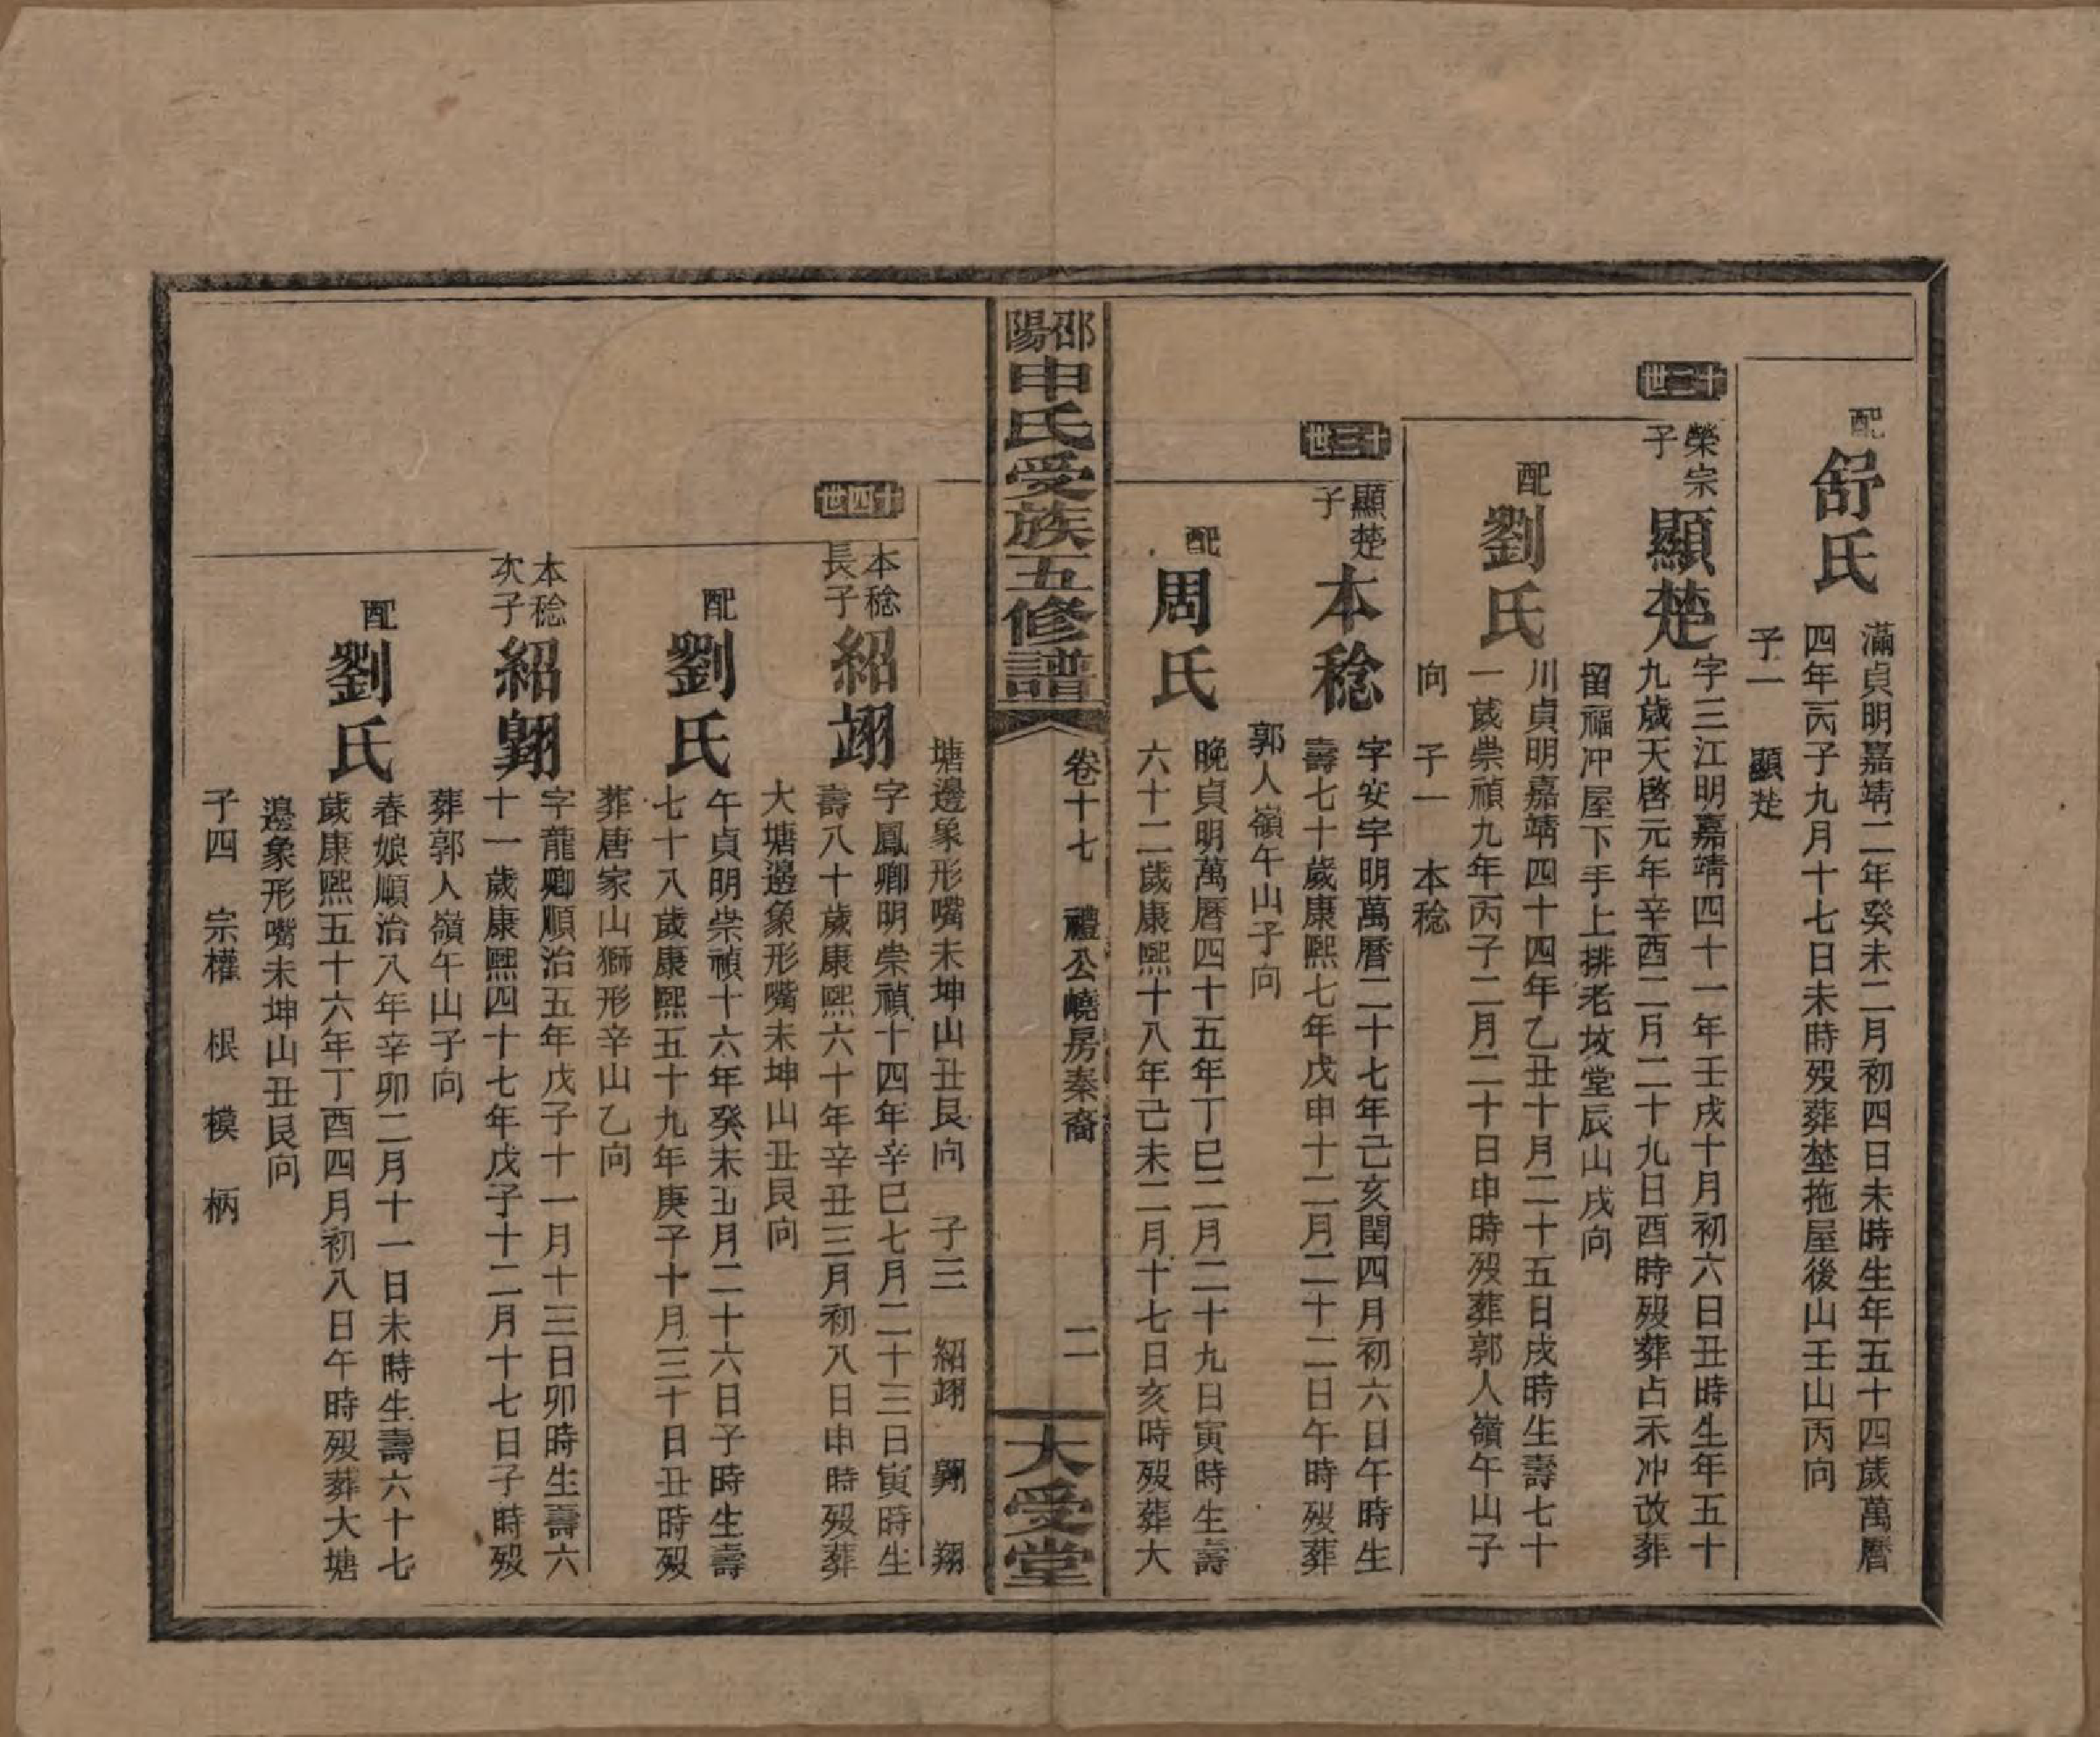 配
舒氏
滿貞明嘉靖二年癸未二月初四日未時生年五十四歲萬曆
四年丙子九月十七日未時歿葬埜拖屋後山壬山丙向
子一 顯楚
十二世
榮宗
子
顯楚
字三江明嘉靖四十一年壬戌十月初六日丑時生年五十
九歲天啓元年辛酉二月二十九日酉時歿葬占禾冲改葬
留福冲屋下手上排老坟堂辰山戌向
配
劉氏
川貞明嘉靖四十四年乙丑十月二十五日戌時生壽七十
一歲崇禎九年丙子二月二十日申時歿葬郭人嶺午山子
向 子一 本稔
十三世
顯楚
子
本稔
字安宇明萬曆二十七年己亥閏四月初六日午時生
壽七十歲康熙七年戊申十二月二十二日午時歿葬
郭人嶺午山子向
配
周氏
晚貞明萬曆四十五年丁巳二月二十九日寅時生壽
六十二歲康熙十八年己未二月十七日亥時歿葬大
邵陽申氏受族五修譜
卷十七 禮公嶢房秦裔 二
大受堂
塘邊象形嘴未坤山丑艮向 子三 紹翊 翺 翔
十四世
本稔
長子
紹翊
字鳳卿明崇禎十四年辛巳七月二十三日寅時生
壽八十歲康熙六十年辛丑三月初八日申時歿葬
大塘邊象形嘴未坤山丑艮向
配
劉氏
午貞明崇禎十六年癸未五月二十六日子時生壽
七十八歲康熙五十九年庚子十月三十日丑時歿
葬唐家山獅形辛山乙向
本稔
次子
紹翺
字龍卿順治五年戊子十一月十三日卯時生壽六
十一歲康熙四十七年戊子十二月十七日子時歿
葬郭人嶺午山子向
配
劉氏
春娘順治八年辛卯二月十一日未時生壽六十七
歲康熙五十六年丁酉四月初八日午時歿葬大塘
邊象形嘴未坤山丑艮向
子四 宗權 根 模 柄